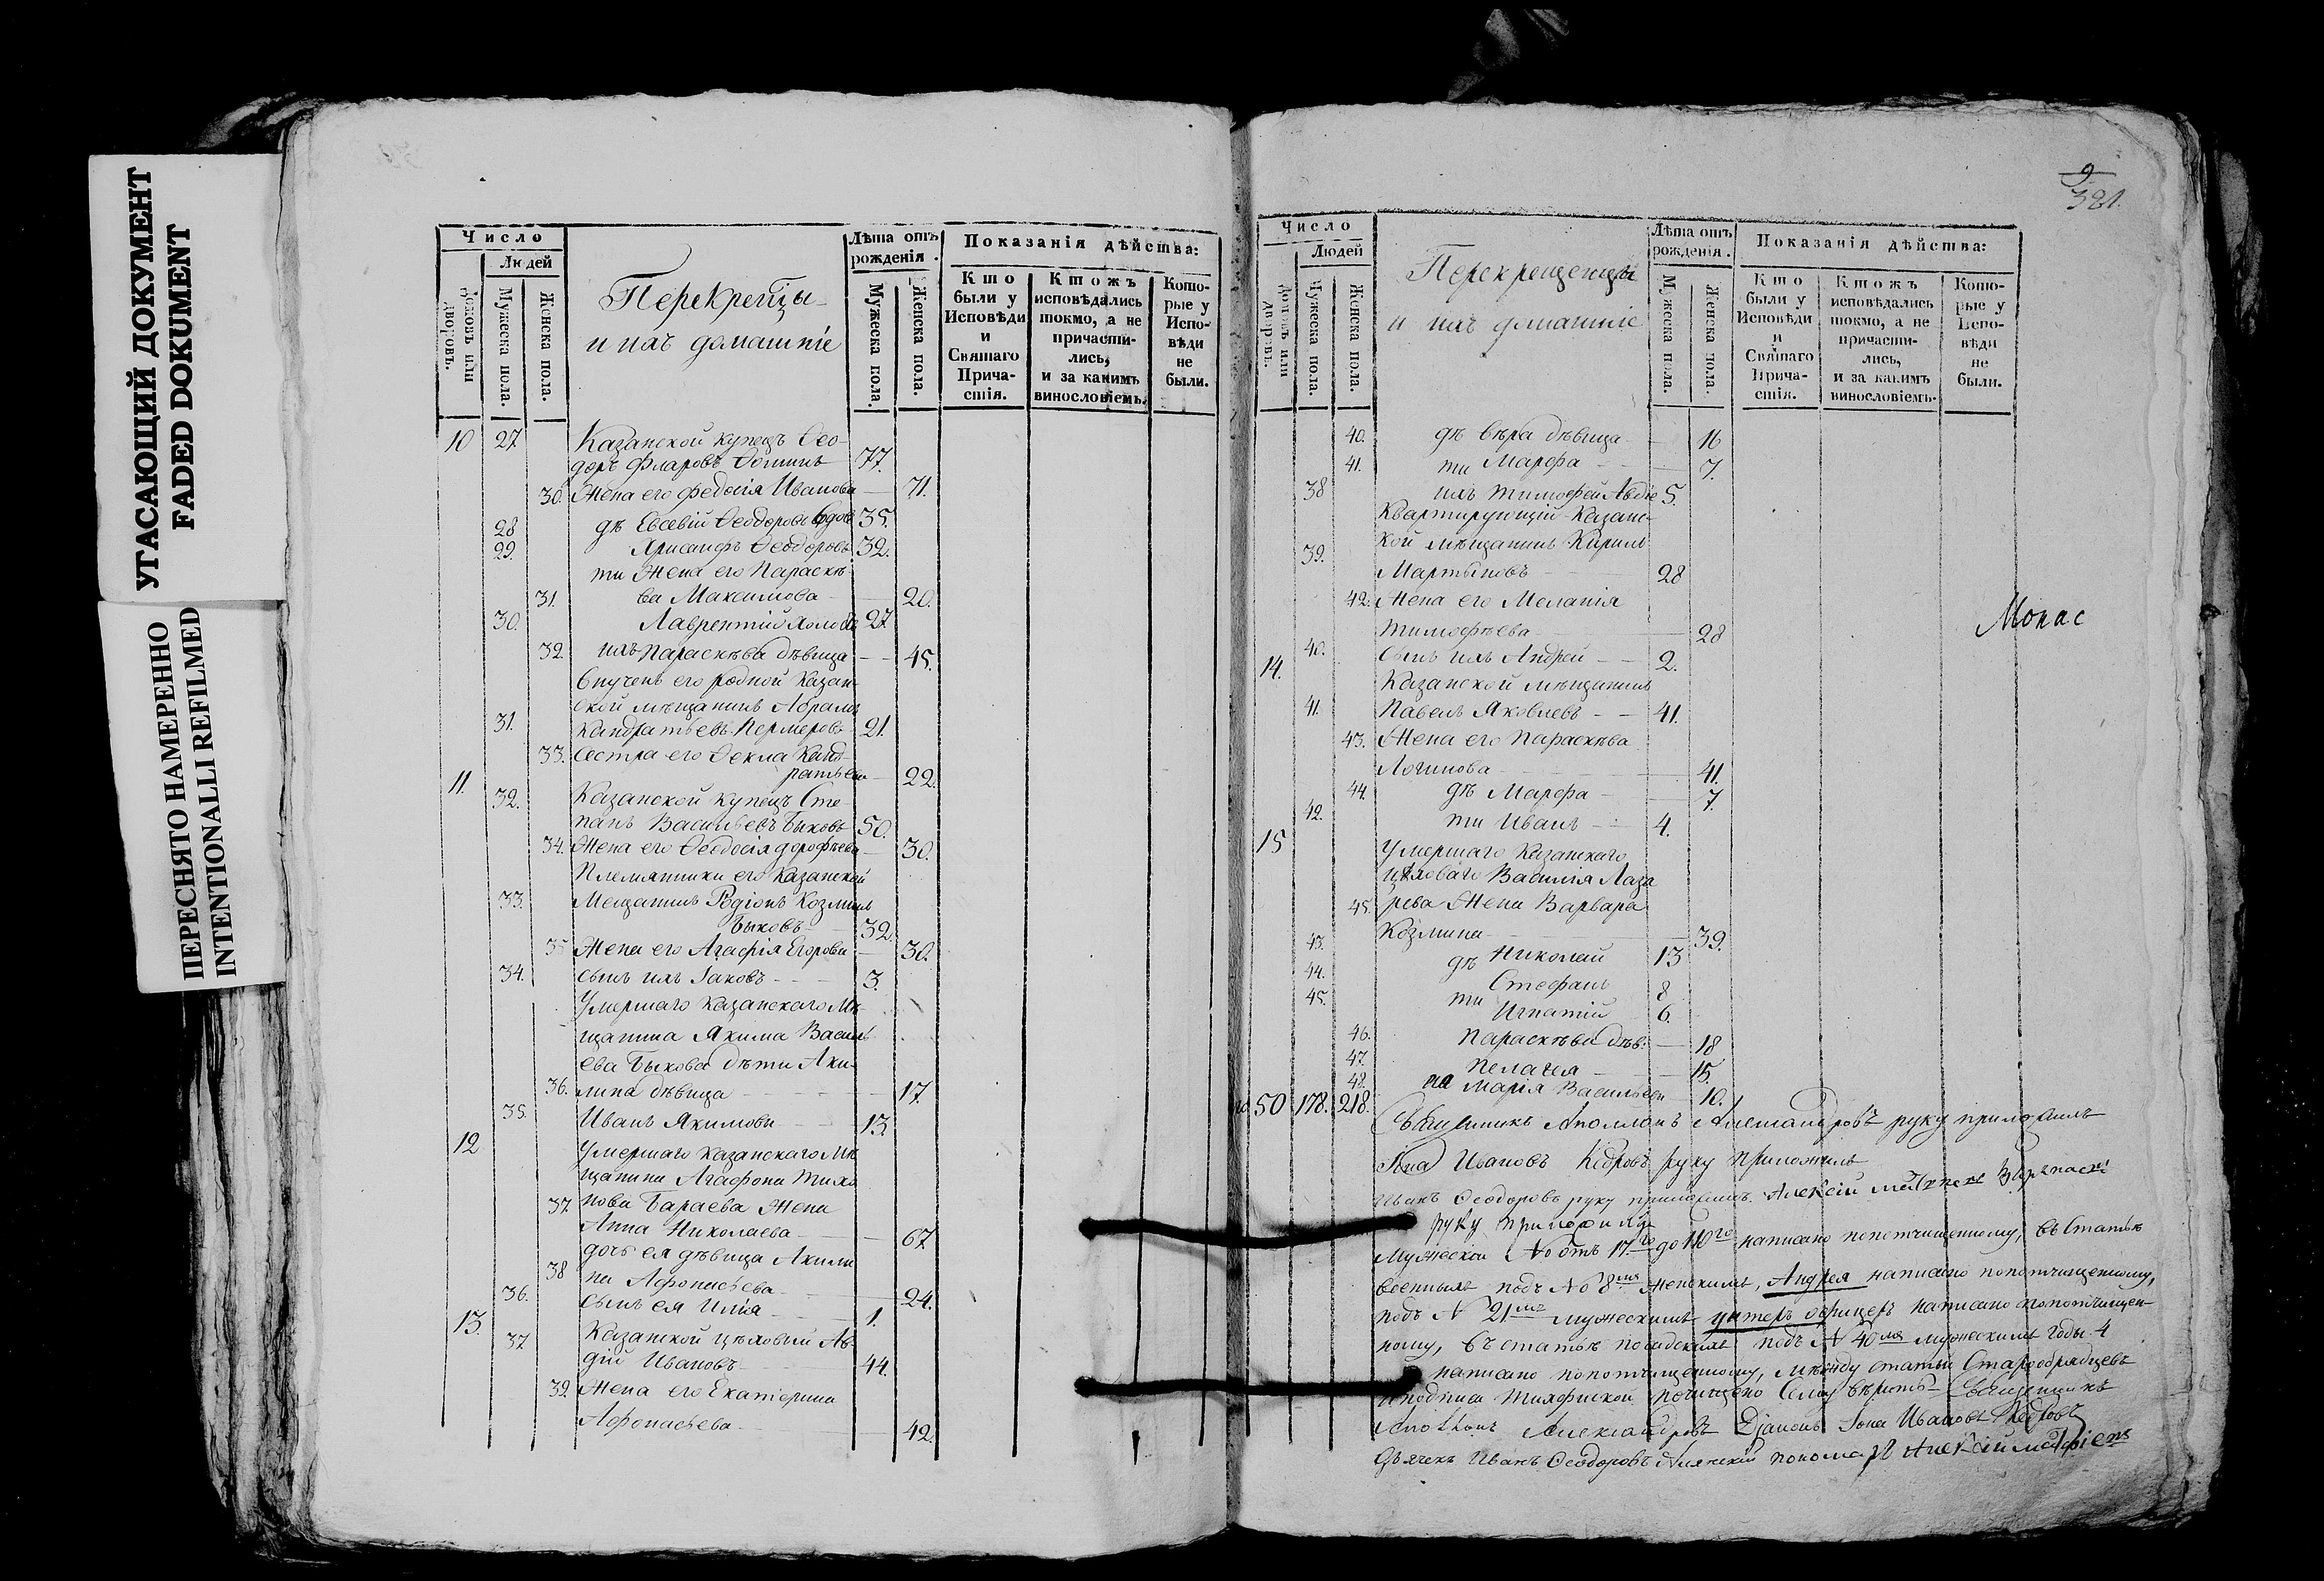 УГАСАЮЩИЙ ДОКУМЕНТ
FADED DOKUMENT
ПЕРЕСНЯТО НАМЕРЕННО
INTENTIONALLI REFILMED
Число
Людей
домовъ или дворовъ.
Мужеска пола.
Женска пола.
Перекрепцы
и ихъ домашніе
Лѣта отъ рожденія.
Мужеска пола.
Женска пола.
Показанія дѣйства:
Кто были у Исповѣди и Святаго Причастія.
Ктожъ исповѣдались токмо, а не причастились, и за какимъ винословіемъ.
Которые у Исповѣди не были.
10 27 Казанской купецъ Ѳео-
доръ Фларовъ Ѳоминъ 77.
30. Жена его Федосія Иванова 71.
28 дѣ Евсевій Ѳеодоровъ вдовъ 35.
29. Хрисанфъ Ѳеодоровъ 32.
ти Жена его Параскѣ-
31. ва Максимова 20.
30. Лаврентій холо 27
32. ихъ Параскѣва дѣвица 45.
Внученъ его родной Казан-
ской мѣщанинъ Абрамъ
31. Кандратьевъ 21.
33. Сестра его Ѳекла Канд-
ратьева 22.
11. 32. Казанской купецъ Сте-
панъ Васильевъ Быковъ 50.
34. Жена его Ѳеодосія Дорофѣева 30.
Племянники его Казанской
33. Мещанинъ Родіонъ Козминъ
Быковъ 32.
35 Жена его Агафія Егорова 30.
34. сынъ ихъ Іаковъ 3.
Умершаго Казанскаго Мѣ-
щанина Якима Василь
ева Быкова дѣти Аки-
36. лина дѣвица 17.
35. Иванъ Якимовъ 13.
12 Умершаго Казанскаго Мѣ
щанина Агафона Тихо
37 нова Бараева Жена
Анна Николаева 67.
дочь ея дѣвица Акили
38 на Афонасьева 24.
36. сынъ ея Илія 1.
13. 37 Казанской цѣховый Ав-
дій Ивановъ 44.
39. Жена его Екатерина
Афонасьева 42.
9
381.
Число
Людей
домовъ или дворовъ.
Мужеска пола.
Женска пола.
Перекрещенцы
и ихъ домашніе
Лѣта отъ рожденія.
Мужеска пола.
Женска пола.
Показанія дѣйства:
Кто были у Исповѣди и Святаго Причастія.
Ктожъ исповѣдались токмо, а не причастились, и за какимъ винословіемъ.
Которые у Исповѣди не были.
40. дѣ Вѣра дѣвица 16
41. ти Марфа 7.
38 ихъ Тимофей Авдіе 5.
Квартирующій Казанс-
39. кой мѣщанинъ Карилъ
Мартыновъ 28
42. Жена его Меланія
Тимофѣева 28
40. Сынъ ихъ Андрей 2.
14. Казанской мѣщанинъ
41. Павелъ Яковлевъ 41.
43. Жена его Параскѣва
Логинова 41.
44. дѣ Марфа 7.
42. ти Иванъ 4.
15 Умершаго Казанскаго
цѣховаго Василія Лаза
45. рева Жена Варвара
Козмина 39.
43. дѣ Николай 13
44. Стефанъ 8
45. ти Игнатій 6.
46. Параскѣва дѣв. 18
47. Пелагея 15.
48. Марія Васильева 10.
50 178. 218.
Священникъ Аполлонъ Александровъ руку приложилъ
Іона Ивановъ Кедровъ руку приложилъ
Иванъ Ѳеодоровъ руку приложилъ. Алексій
руку приложилъ
Мужеской № отъ 17го до 110го написано попотчищенному, въ Статьѣ
военныхъ подъ № 8мъ женскимъ, Андрея написано попотчищенному,
подъ № 21мъ мужескимъ унтеръ офицеръ написано попотчищен-
ному, въ статьѣ посадскихъ подъ № 40мъ мужескимъ годы 4
написано попотчищенному, между статьи Старообрядцевъ
почищено Сему вѣрить Священникъ
Аполлонъ Александровъ Діаконъ Іона Ивановъ Кедровъ
Дьячекъ Иванъ Ѳеодоровъ пономарь Алексій
Монас